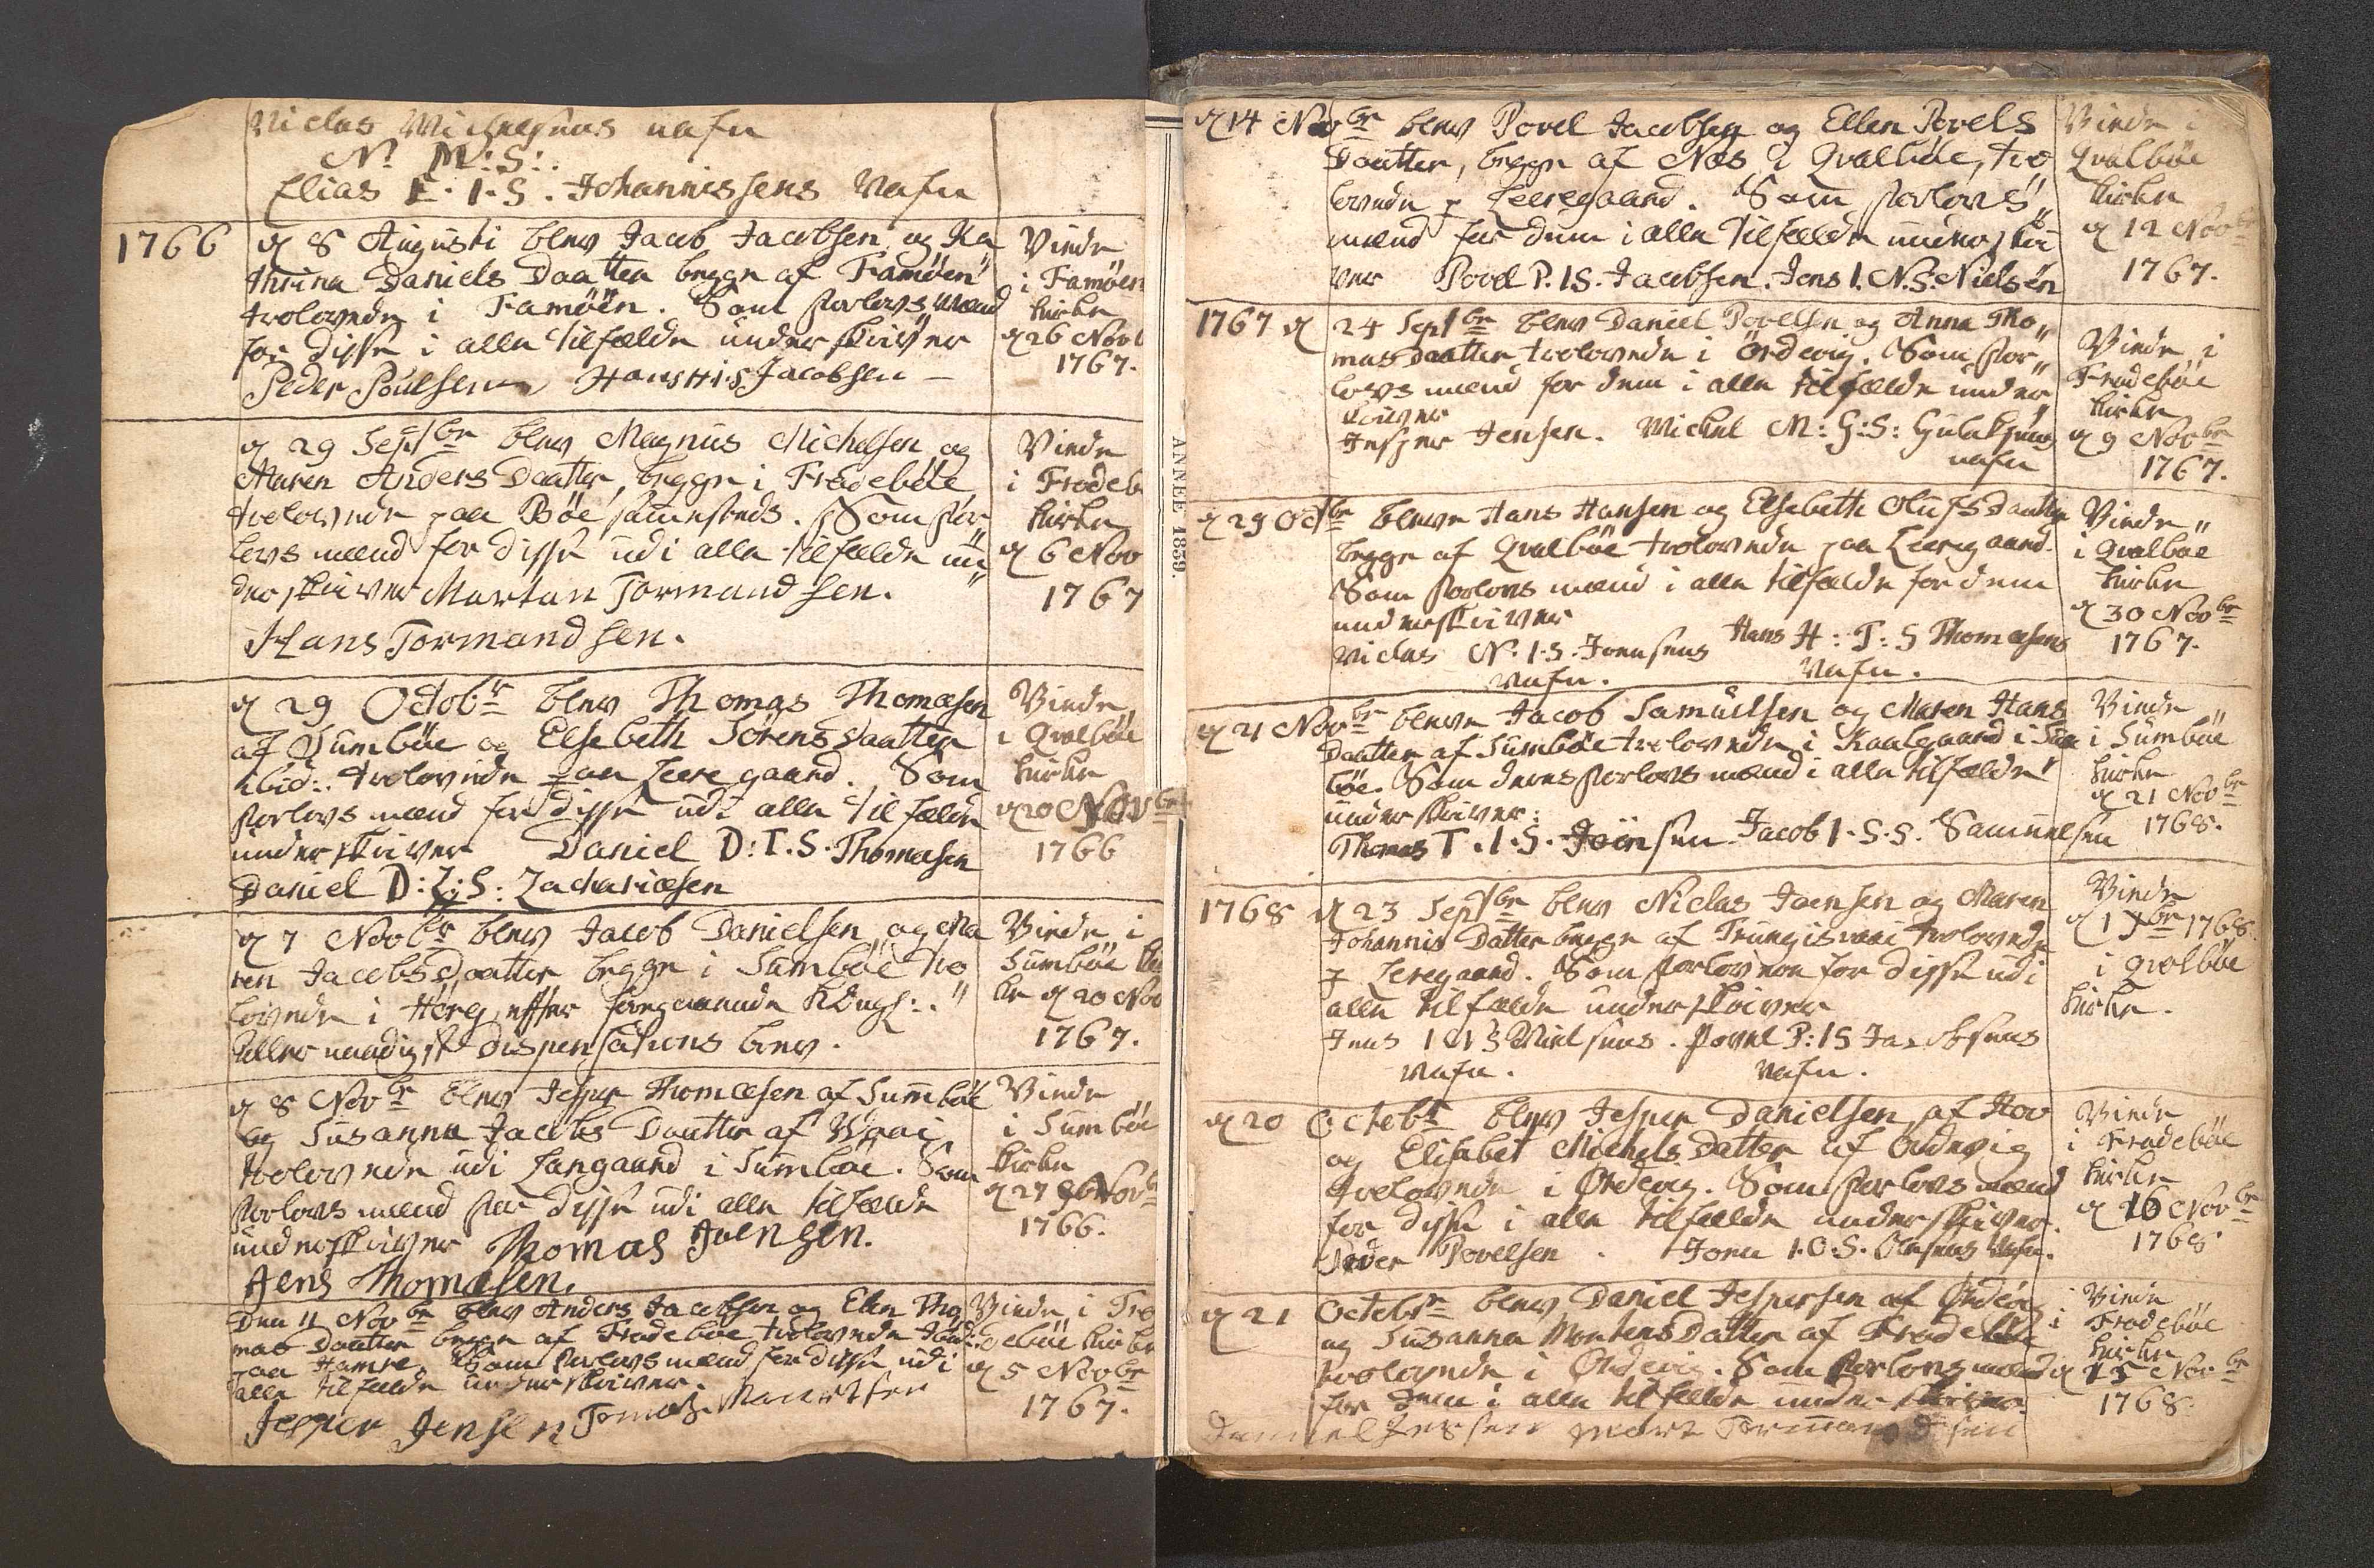 Niclas Michelsens nafn
N: M:S:.
Elias E. I. S. Johannissens Nafn
1766
d 8 Augusti blev Jacob Jacobsen og Ka
thrina Daniels Daatter begge af Famöen
trolovede i Famöen. Som forlovs mænd
for disse i alle tilfælde underskriver
Peder Poulsen Hans H I S Jacobsen
Viede
i Famöen
kirke
d 26 Nov
1767.
d 29 Septbr blev Magnus Michelsen og
Maren Anders Daatter, begge i Frodebøe
trolovede paa Bøe sammesteds. Som for
lovs mænd for disse udi alle tilfælde un
der skriver Martan Tormandsen.
Hans Tormandsen.
Viede
i Frodeb
kirke
d 6 Nov
1767
d 29 Octobr blev Thomas Thomæsen
af Sumbøe og Elsebeth Sörens Daatter
ibid: trolovede paa Leere gaard. Som
forlovs mænd for disse udi alle tilfælde
underskriver Daniel D:T.S. Thomæsen
Daniel D:Z:S: Zachariæsen
Viede
i Qvalbøe
kirke
d 20 Novbr
1766
d 7 Novbr blev Jacob Danielsen og Ma
ren Jacobs Daatter begge i Sumbøe tro
lovede i Hörg, efter foregaaende Kongl:
allernaadigste Dispensations brev.
Viede i
Sumbøe kir
ke d 20 Nov
1767.
d 8 Novbr blev Jesper Thomæsen af Sumbøe
og Susanna Jacobs Daatter af Waai
trolovede udi Langaard i Sumbøe. Som
forlovs mænd for disse udi alle tilfælde
underskriver Thomas Joensen.
Jens Thomæsen.
Viede
i Sumbøe
kirke
d 27 Novb
1766.
Den 11 Novbr blev Anders Jacobsen og Elen Tho
mas Daatter begge af Frodebøe trolovede Ibid:
paa Hamre. Som forlovs mænd for disse udi
alle tilfælde underskriver.
Jesper Jensen Tomas
Viede i Fro
debøe kirke
d 5 Novbr
1767.
ANNEE 1839.
d 14 Novbr blev Povel Jacobsen og Ellen Povels
Daatter, begge af Næs i Qvalbøe, tro
lovede p Leeregaard. Som forlovs
mænd for dem i alle tilfælde underskri
ver Povel P. I S. Jacobsen. Jens I. N.S: Nielsön
Viede i
Qvalbøe
kirke
d 12 Novbr
1767.
1767 d 24 Septbr blev Daniel Povelsen og Anna Tho
mas Daatter trolovede i Ördevig. Som for
lovs mænd for dem i alle tilfælde under
skriver
Jesper Jensen. Michel M: G:S: Gulaksens
nafn
Viede i
Frodebøe
kirke
d 9 Novbr
1767.
d 29 Octbr bleve Hans Hansen og Elsebeth Olufs Daatter
begge af Qvalbøe trolovede paa Leeregaard.
Som forlovs mænd i alle tilfælde for dem
underskriver
Niclas N. I. S. Joensens Hans H: T: S Thomæsens
Nafn. Nafn.
Viede
i Qvalbøe
kirke
d 30 Novbr
1767.
d 21 Novbr bleve Jacob Samuelsen og Maren Hans
Daatter af Sumbøe trolovede i Kaalgaard i Sum
bøe. Som deres forlovs mænd i alle tilfælde
underskriver:
Thomas T. I. S. Joensen Jacob I. S. S. Samuelsen
Viede
i Sumbøe
kirke
d 21 Novbr
1768.
1768 d 23 Septbr blev Niclas Joensen og Maren
Johannis Datter begge af Trungisvaai trolovede
p Leregaard. Som forlovere for disse udi
alle tilfælde underskriver
Jens I N S Nielsens. Povel P: I S Jacobsens
Nafn. Nafn.
Viede
d 1 1768.
i Qvolbøe
kirke.
d 20 Octobr blev Jesper Danielsen af Hov
og Elisabet Michels Datter af Ordevig
trolovede i Ørdevig. Som forlovs mænd
for disse i alle tilfælde underskriver.
Peder Povelsen. Joen I. O. S. Olesens Nafn.
Viede
i Frodebøe
kirke
d 16 Novbr
1768
d 21 Octobr blev Daniel Jespersen af Ørdevig
og Susanna Mortens Datter af Frodebøe
trolovede i Ørdevig. Som forlovs mænd
for dem i alle tilfælde underskriver.
Daniel Jessen Mort Tormandsen
Viede
i Frodebøe
kirke
d 15 Novbr
1768.